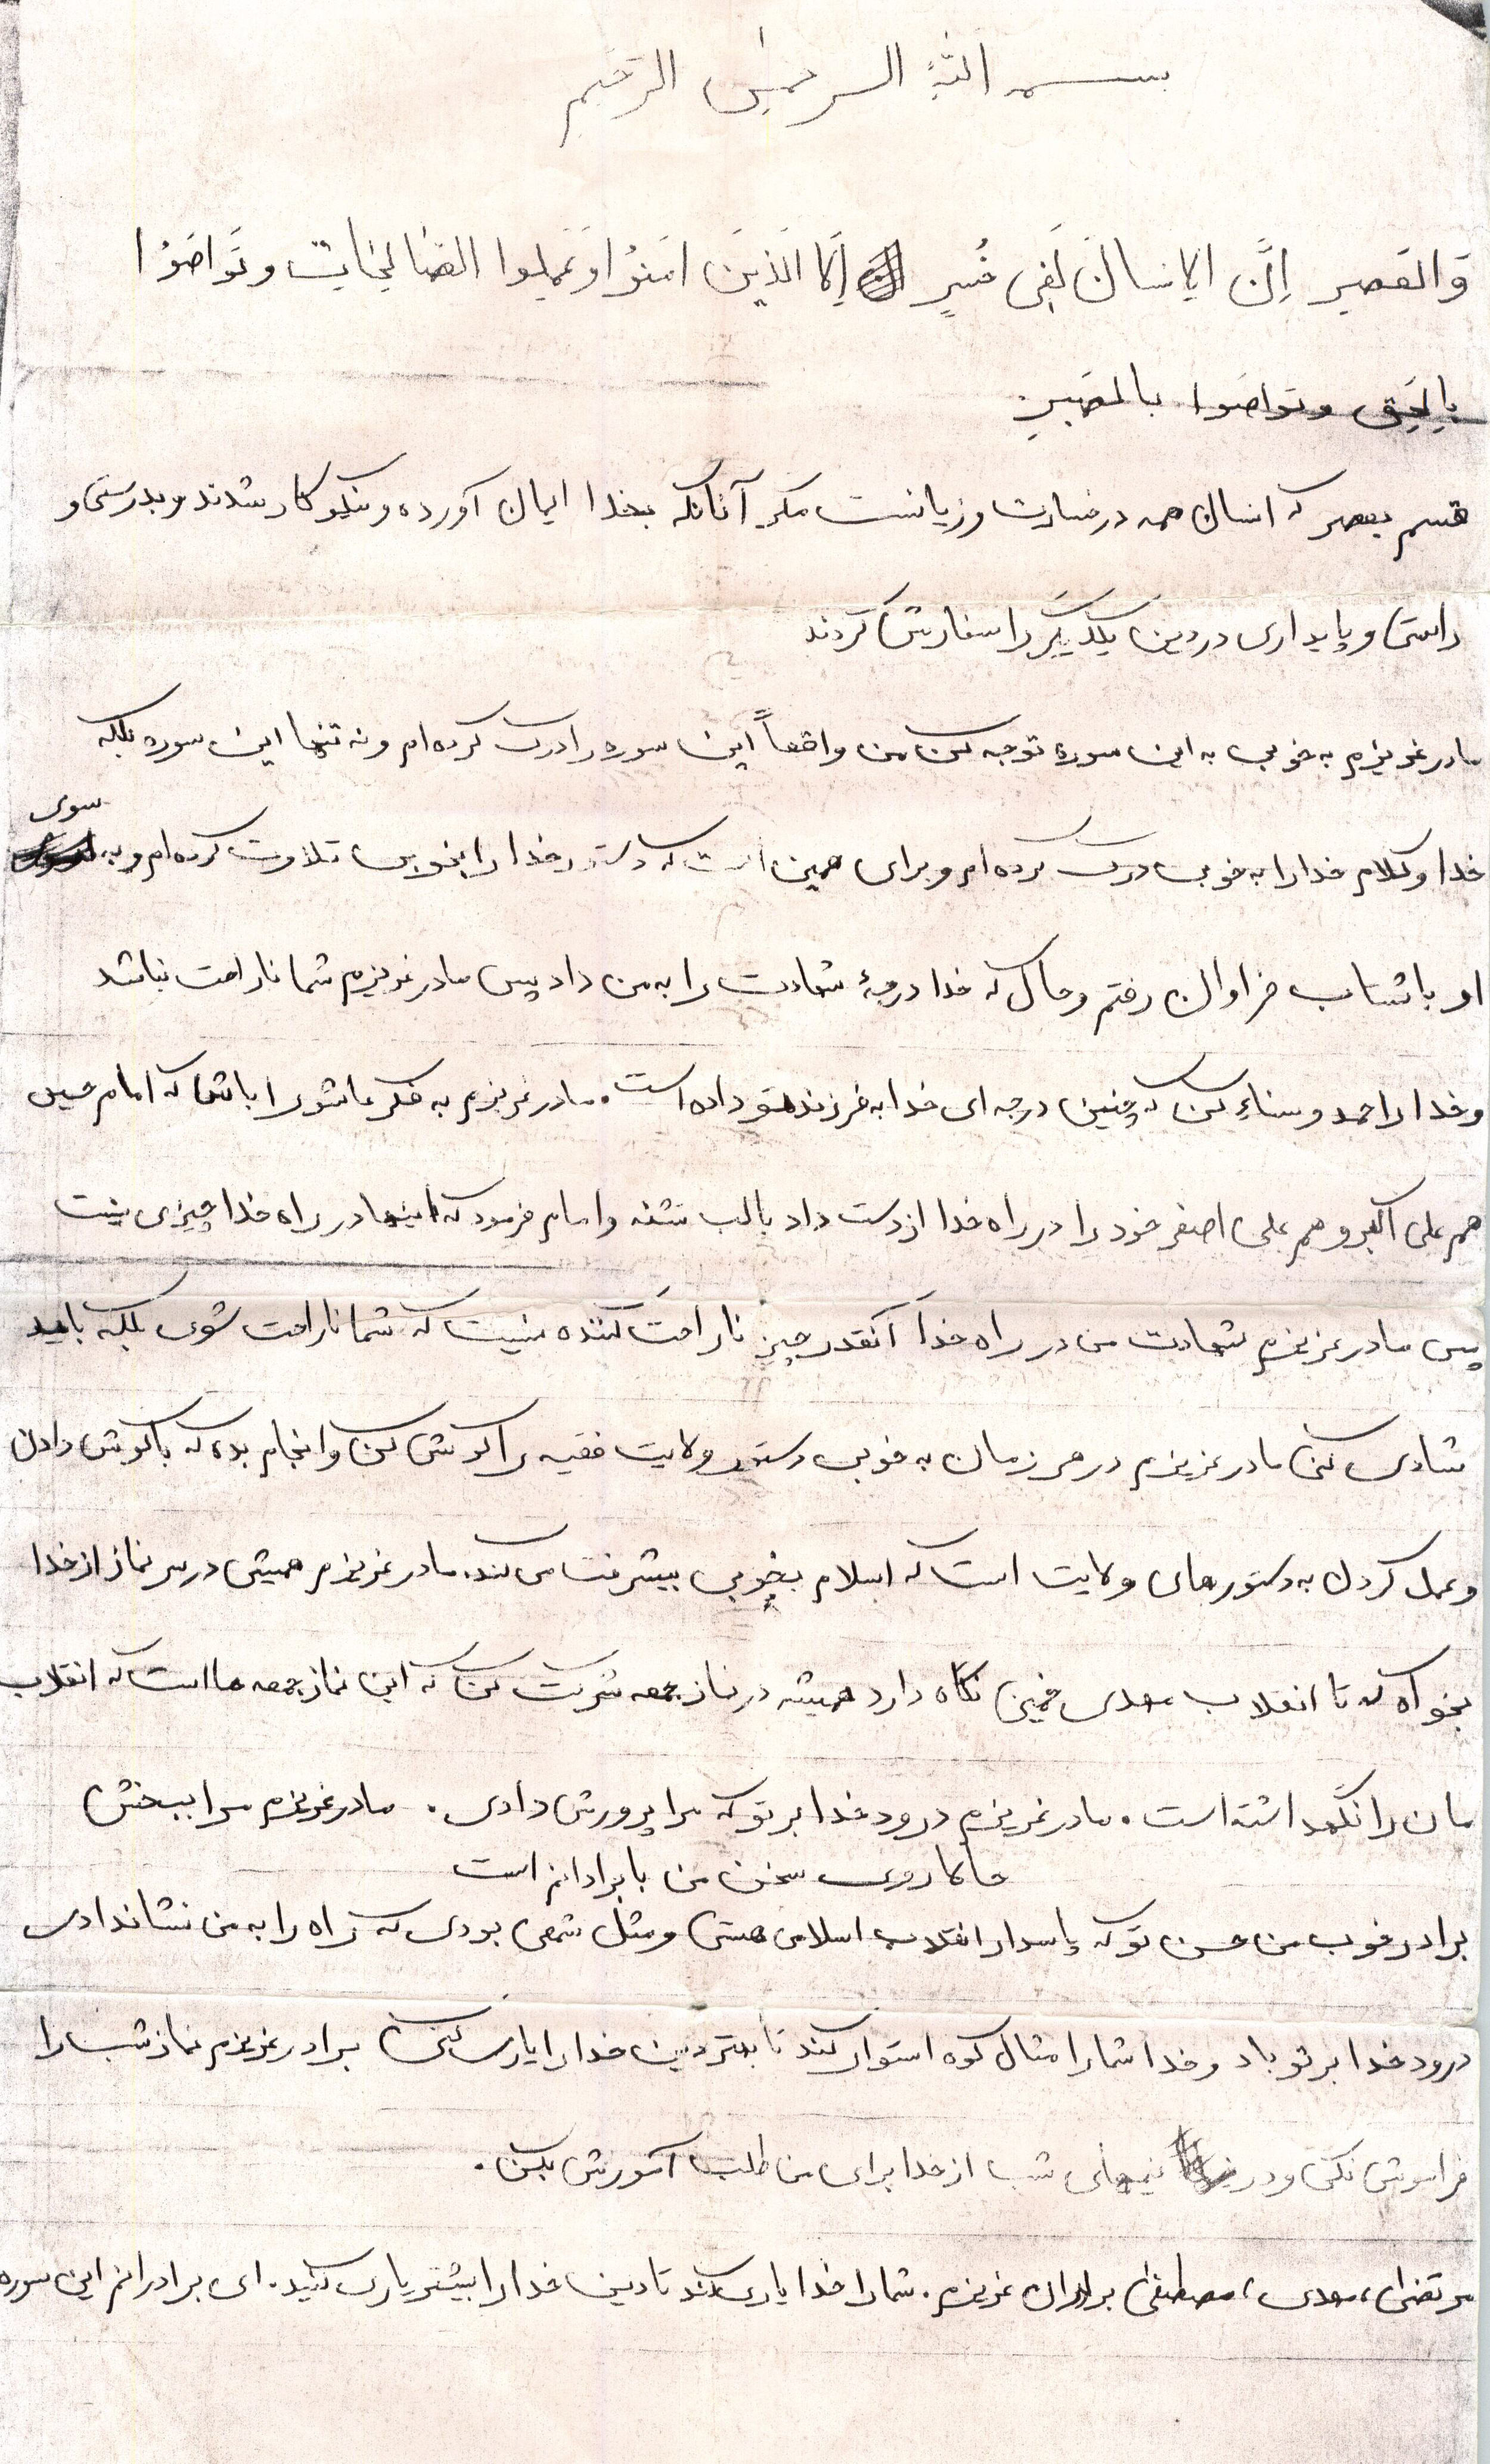 بسم الله الرحمن الرحیم
وَالعَصرِ اِنَّ الاِنسانَ لَفِی خُسرٍ اِلّا الَّذینَ امَنوُا وَعَمِلوا الصّالِحاتِ وَتَواصَوْا
بِالحَقِّ وتواصَوا بالصَبرِ
قسم بعصر که انسان همه در خسارت و زیانست مگر آنانکه بخدا ایمان آورده و نیکوکار شدند و بدرستی و
راستی و پایداری در دین یکدیگر را سفارش کردند
مادر عزیزم به خوبی به این سوره توجه کن من واقعاً این سوره را درک کرده ام و نه تنها این سوره بلکه
خدا و کلام خدا را به خوبی درک کرده ام و برای همین است که دستور خدا را بخوبی تلاوت کرده ام و به سوی
او با شتاب فراوان رفتم و حال که خدا درجهٔ شهادت را به من داد پس مادر عزیزم شما ناراحت نباشد
و خدا را حمد و سناء کن که چنین درجه ای خدا به فرزند تو داده است. مادر عزیزم به فکر عاشورا باش که امام حسین
هم علی اکبر و هم علی اصغر خود را در راه خدا از دست داد با لب تشنه و امام فرمود که اینها در راه خدا چیزی نیست
پس مادر عزیزم شهادت من در راه خدا آنقدر چیز ناراحت کننده نیست که شما ناراحت شوی بلکه باید
شادی کنی مادر عزیزم در هر زمان به خوبی دستور ولایت فقیه را گوش کن و انجام بده که با گوش دادن
و عمل کردن به دستورهای ولایت است که اسلام بخوبی پیشرفت می کند. مادر عزیزم همیشی در سر نماز از خدا
بخواه که تا انقلاب مهدی خمینی نگاه دارد همیشه در نماز جمعه شرکت کن که این نماز جمعه ها است که انقلاب
مان را نگهداشته است. مادر عزیزم درود خدا بر تو که مرا پرورش دادی. مادر عزیزم مرا ببخش
حالا روی سخن من با برادانم است
برادر خوب من حسن تو که پاسدار انقلاب اسلامی هستی و مثل شمعی بودی که راه را به من نشاندادی
درود خدا بر تو باد و خدا شما را مثال کوه استوار کند تا بهتر دین خدا را یاری کنی برادر عزیزم نماز شب را
فراموش نکنی و در نیمهای شب از خدا برای من طلب آمورش بکن.
مرتضی، مهدی، مصطفی برادران عزیزم. شما را خدا یاری کند تا دین خدا را بیشتر یاری کنید. ای برادرانم این سوره